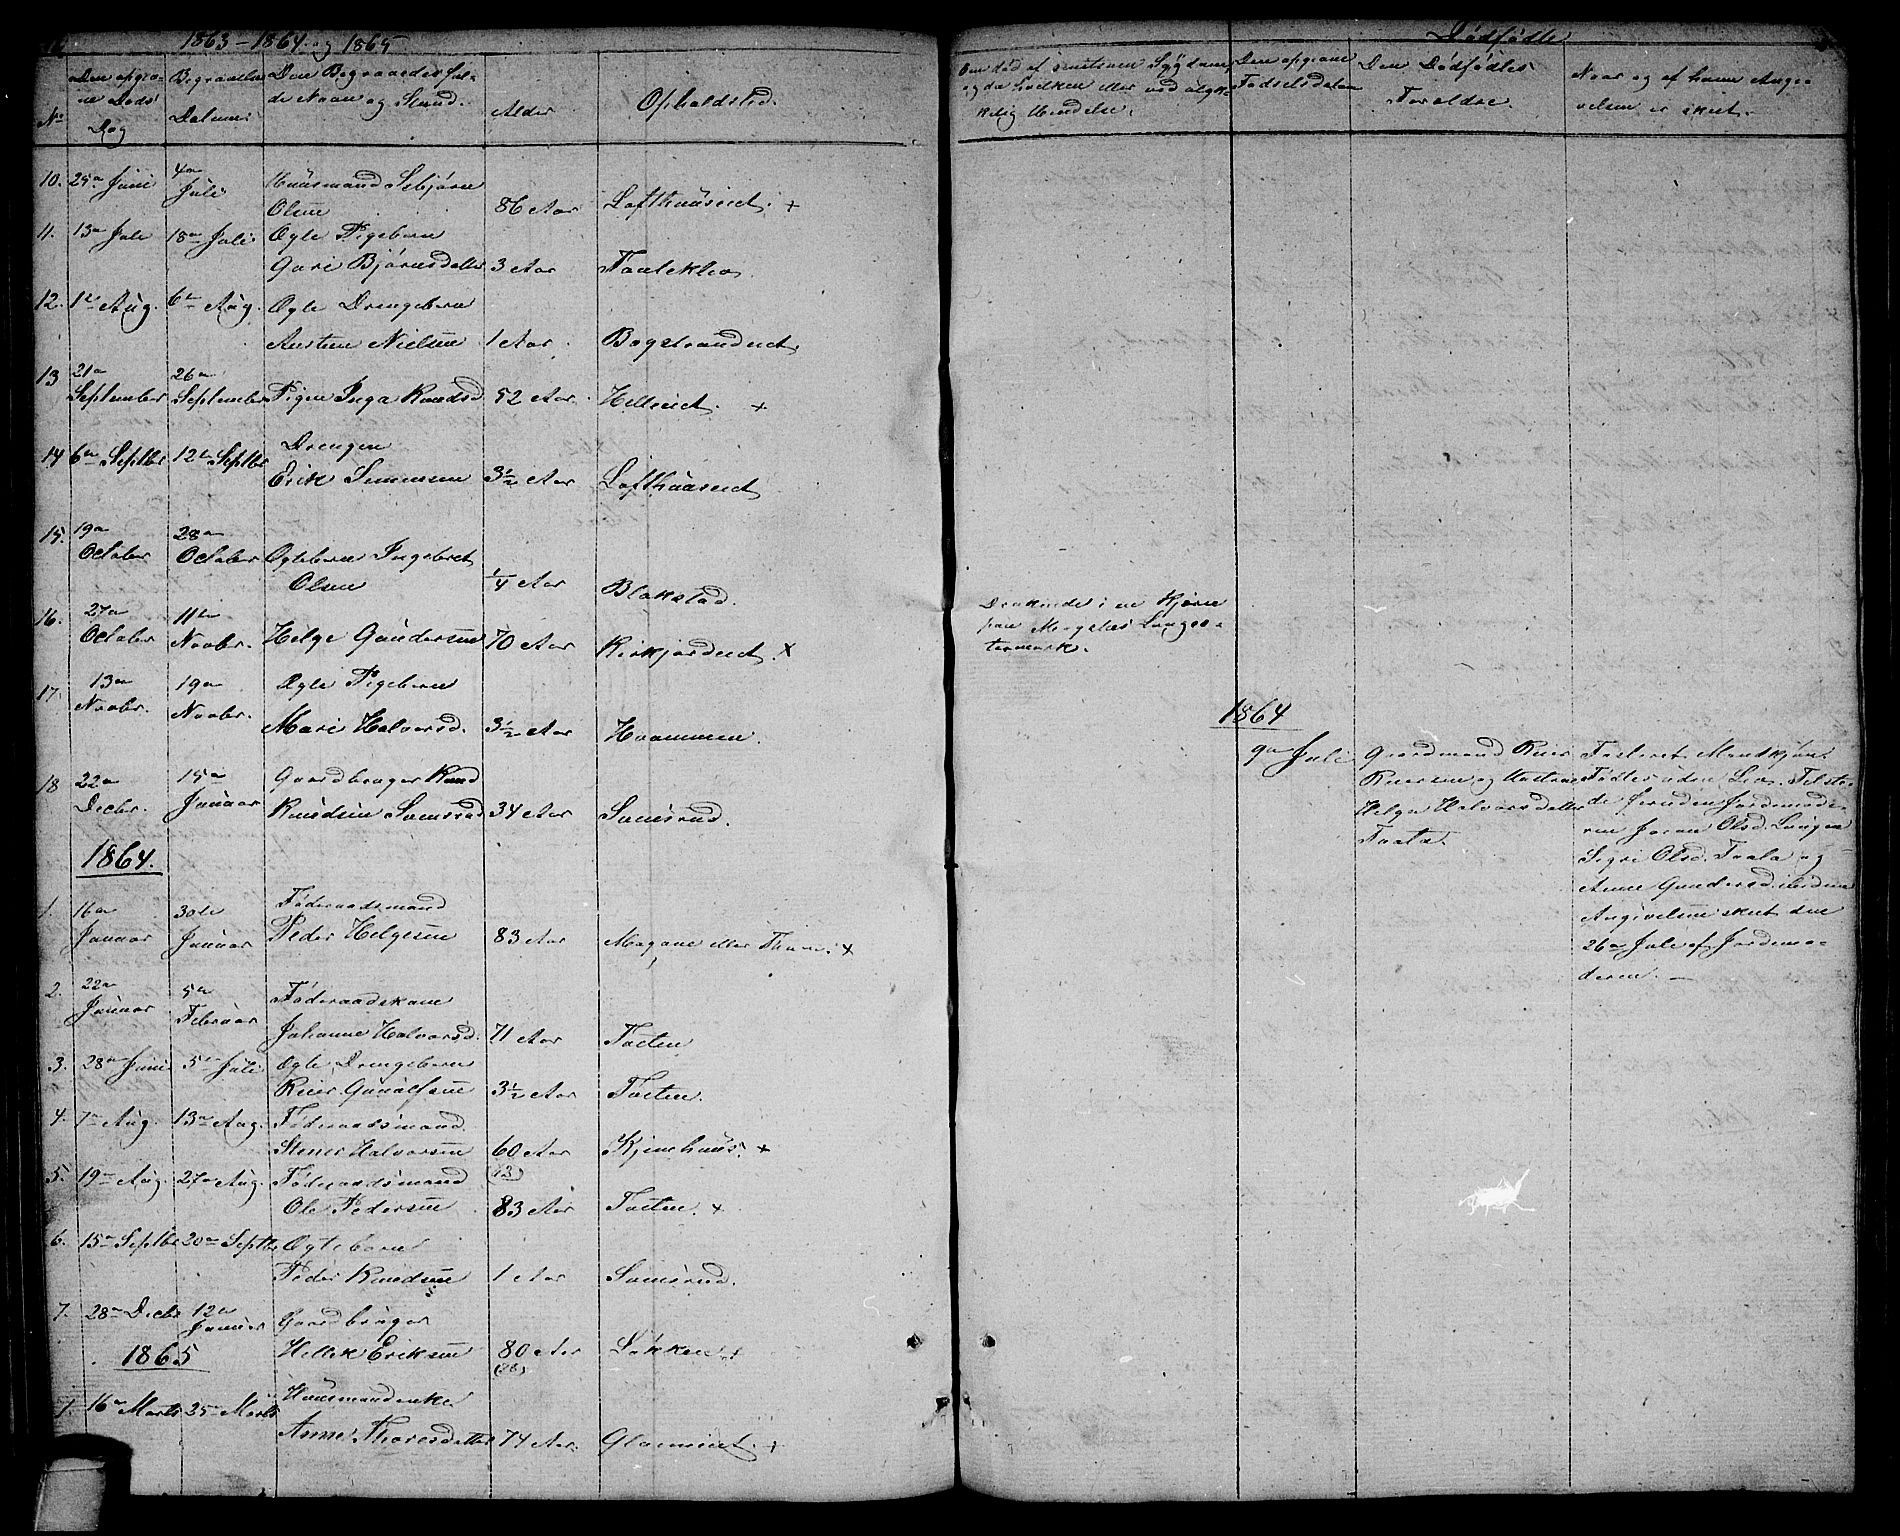 1863-1864 og 1865
No
Den opgivne Døds Dag
Begravelses Datum
Den Begravedes fulde Navn og Stand.
Alder
Opholdssted.
10. 29de Juni 4de Juli Huusmand Sebjørn
Olsen 86 Aar Lofthuuseiet. +
11. 13de Juli 18de Juli Ægte Pigebarn
Guri Bjørnsdatter 3 Aar
12. 1te Aug. 6te Aug. Ægte Drengebarn
Austen Nielsen 1 Aar. Bogstrandeiet
13 21de September 26de September Pigen Inga Knudsd 52 Aar. Helleeiet. +
14 6te Septbr 12te Septbr Drengen
Erik Simensen 3½ Aar Lofthuuseiet
15. 19de October 28de October Ægtebarn Ingebret
Olsen ¼ Aar Blokstad.
16. 27de October 11te Novbr. Helge Gundersen 70 Aar Kirkjordeiet. x
17. 13de Novbr. 19de Novbr. Ægte Pigebarn
Mari Halvorsd. 3½ Aar Hvammen.
18 22de Decbr. 15de Januar Gaardbruger Knud
Knudsen Somsrud 34 Aar Somsrud.
1864.
1. 16de Januar 30te Januar Føderaadsmand
Peder Helgesen 83 Aar Mogane eller +
2. 22de Januar 5te Februar Føderaadskone
Johanne Halvorsd. 71 Aar Toeten
3. 28de Juni 5te Juli Ægte Drengebarn
Reier Gunulfsen 3½ Aar Toeten.
4. 7de Aug. 13de Aug. Føderaadsmand.
Stener Halvorsen 60 Aar Kjemhuus. +
5. 19de Aug. 27de Aug. Føderaadsmand
Ole Pedersen 83 Aar Toeten. +
6. 15de Septbr 20de Septbr Ægtebarn
Peder Knudsen 1 Aar Somsrud.
7. 28de Decbr 12te Januar Gaardbruger
Hellek Eriksen 80 Aar Løkken +
1865
1. 16de Marts 25de Marts Huusmandsenke
Anne Thoresdatter 74 Aar. +
Dødfødte
Om død af smitsom Sygdom,
og da hvilken eller ved ulykkelig Hændelse.
Den opgivne
Fødselsdatum
Den Dødfødtes
Forældre.
Naar og af hvem Angivelsen er skeet.
Druknede i en Kjørn
paa
1864
9de Juli
Gaardmand Reier
Reiersen og Kone
Helga Halvorsdatter
Traale.
Fosteret Mandkjøn.
Født uden Liv. Tilstede foruden Jordemoderen Joran Olsd.
Sigri Olsd. Traale og
Anne Gundersd. ibidem
Angivelsen skeet den
26de Juli af Jordemoderen. —